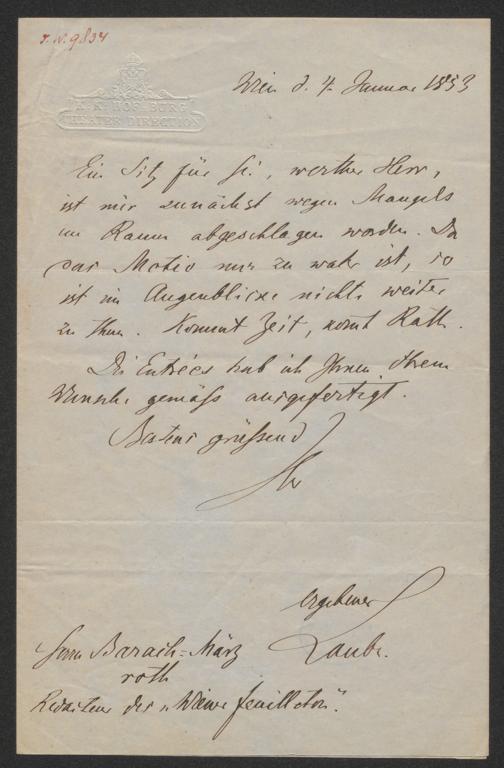 I.N. 9834
K. K. HOF BURG
THEATER DIRECTION
Wien d. 4. Januar 1853
Ein Sitz für Sie, werther Herr,
ist mir zunächst wegen Mangels
an Raum abgeschlagen worden. Da
das Motiv nur zu wahr ist, so
ist im Augenblicke nichts weiter
zu thun. Kommt Zeit, komt Rath.
Die Entrées hab ich Ihnen Ihrem
Wunsche gemäß ausgefertigt.
Bestens grüßend
Ihr
ergebener
Laube.
Herrn Barach-März
roth
Redacteur des „Wiener Feuilleton".